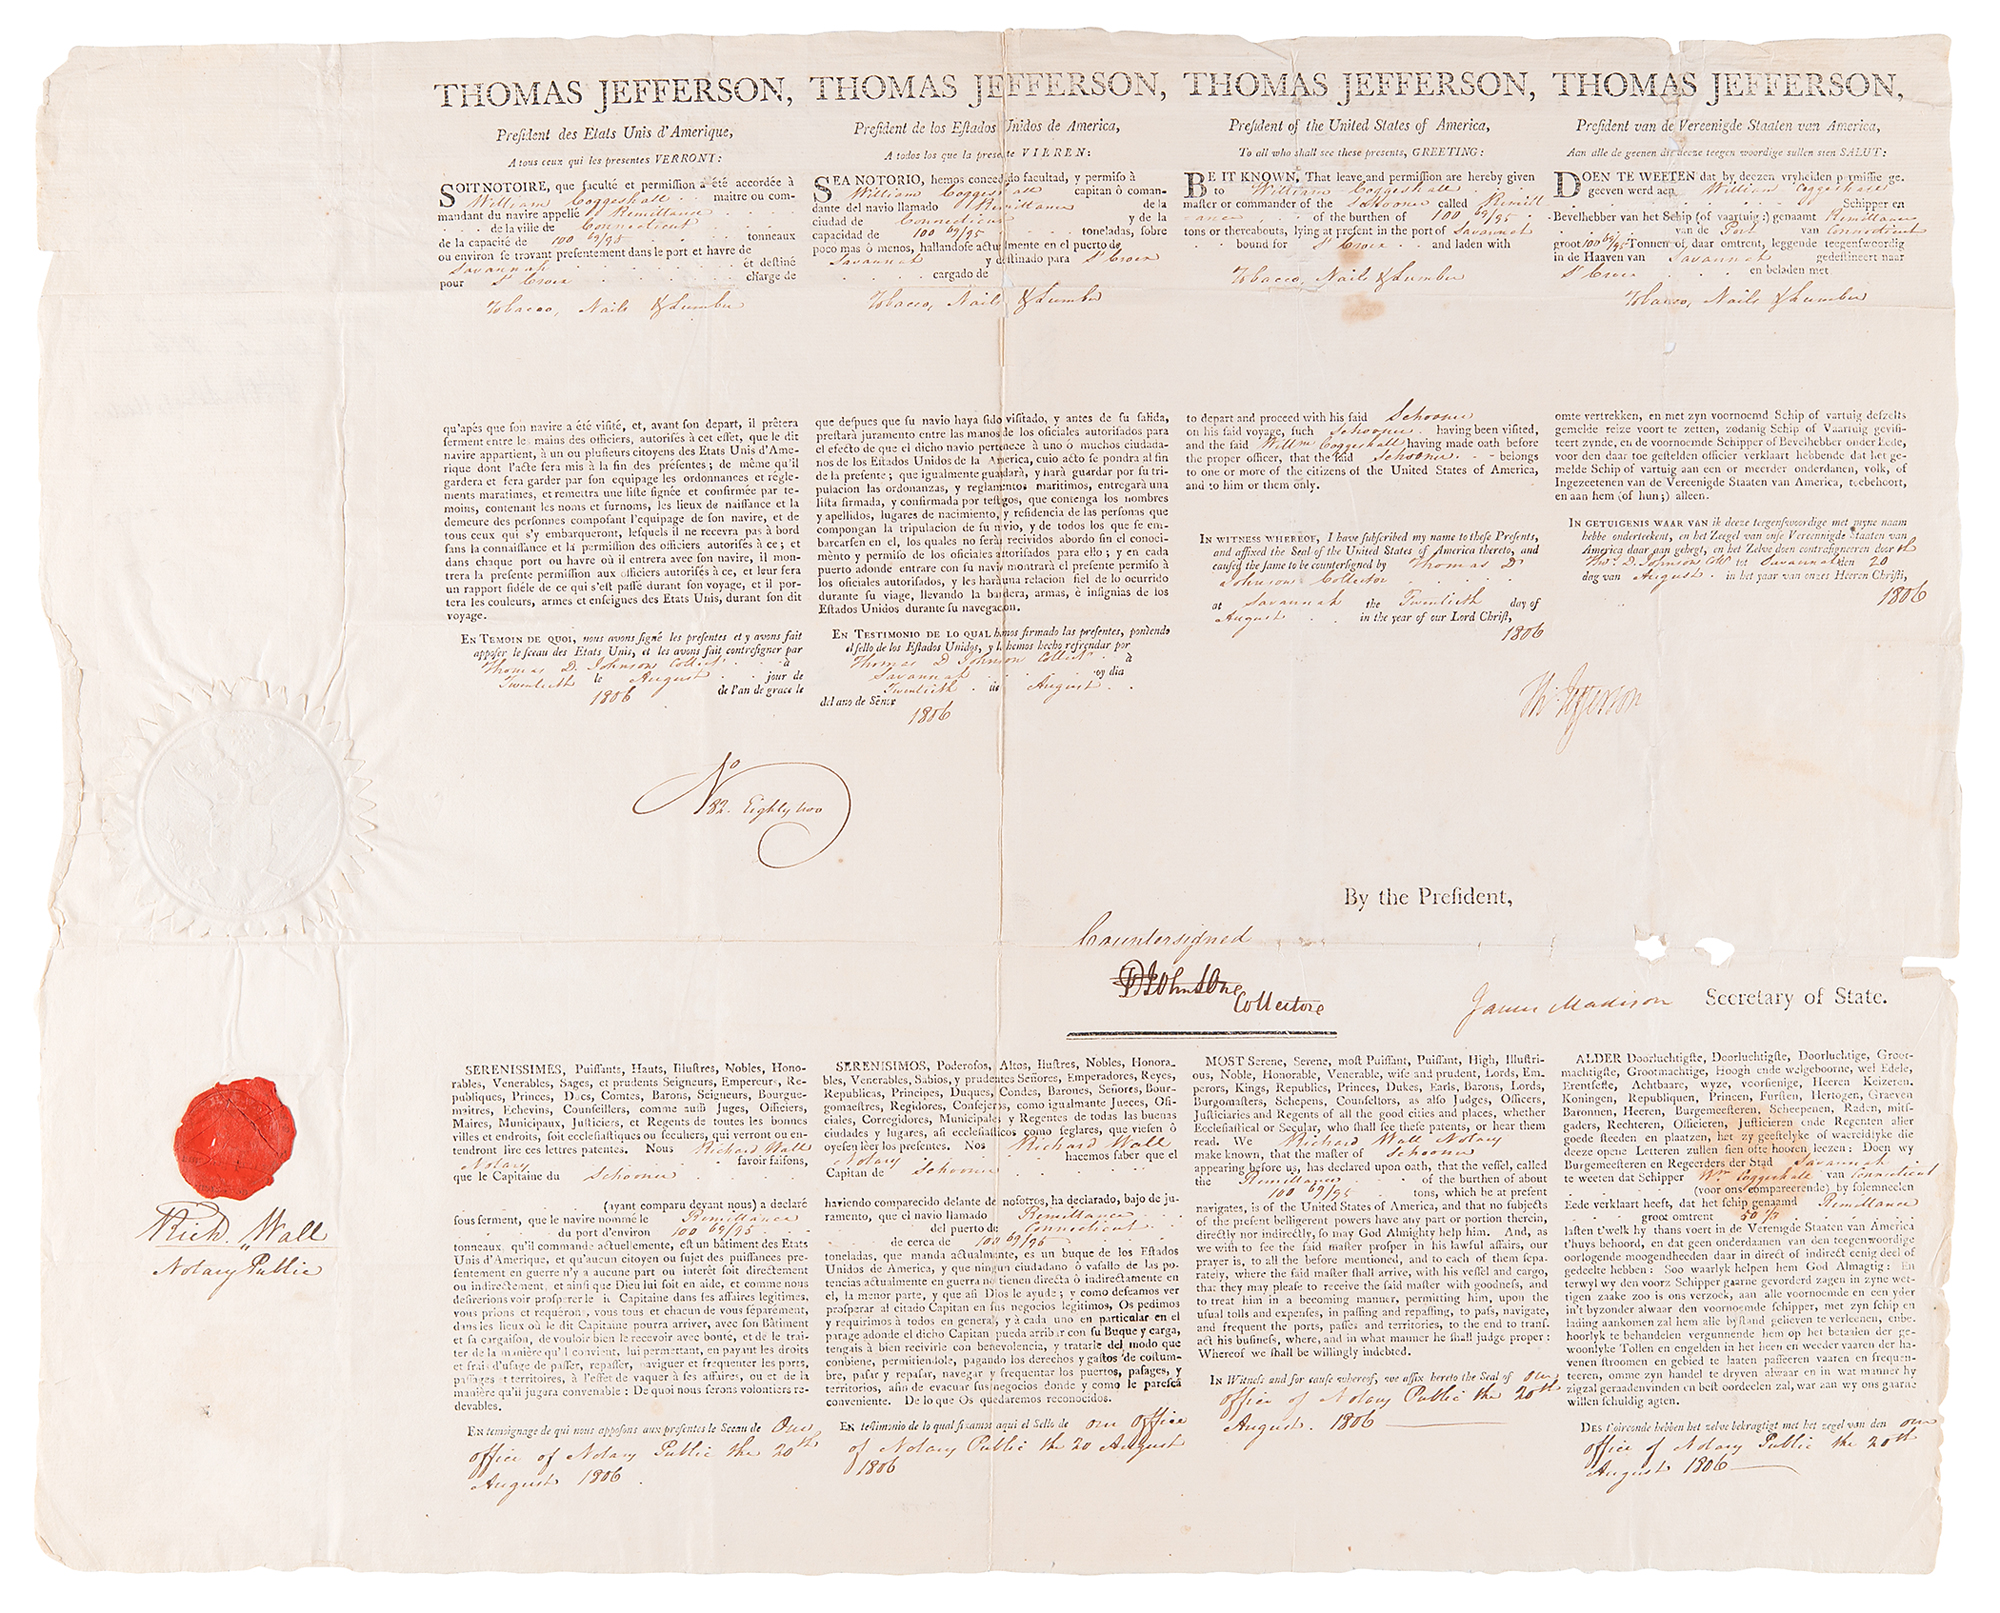 THOMAS JEFFERSON,
President des Etats Unis d'Amerique,
A tous ceux qui les presentes VERRONT:
SOIT NOTOIRE, que faculté et permission a été accordée à
William Coggeshall maitre ou com-
mandant du navire appellé Remittance
de la ville de Connecticut
de la capacité de 100 69/95 tonneaux
ou environ se trovant presentement dans le port et havre de
Savannah et destiné
pour St Croix charge de
Tobacco, Nails & Lumber
qu'apés que son navire a été visité, et, avant son depart, il prêtera
serment entre les mains des officiers, autorisés à cet effet, que le dit
navire appartient, à un ou plusieurs citoyens des Etats Unis d'Ame-
rique dont l'acte sera mis à la fin des présentes; de même qu'il
gardera et fera garder par son equipage les ordonnances et régle-
ments maratimes, et remettra une liste signée et confirmée par te-
moins, contenant les noms et surnoms, les lieux de naissance et la
demeure des personnes composant l'equipage de son navire, et de
tous ceux qui s'y embarqueront, lesquels il ne recevra pas à bord
sans la connaissance et la permission des officiers autorisés à ce; et
dans chaque port ou havre où il entrera avec son navire, il mon-
trera la presente permission aux officiers autorisés à ce, et leur fera
un rapport fidéle de ce qui s'est passé durant son voyage, et il por-
tera les couleurs, armes et enseignes des Etats Unis, durant son dit
voyage.
EN TEMOIN DE QUOI, nous avons signé les presentes et y avons fait
apposer le sceau des Etats Unis, et les avons fait contresigner par
Thomas D. Johnson Collectr à
Twentieth le August jour de
1806 de l'an de grace le
THOMAS JEFFERSON,
President de los Estados Unidos de America,
A todos los que la presente VIEREN:
SEA NOTORIO, hemos concedido facultad, y permiso à
William Coggeshall capitan ò coman-
dante del navio llamado Remittance de la
ciudad de Connecticut y de la
capacidad de 100 69/95 toneladas, sobre
poco mas ò menos, hallandose actualmente en el puerto de
Savannah y destinado para St Croix
cargado de
Tobacco, Nails & Lumber
que despues que su navio haya sido visitado, y antes de su salida,
prestará juramento entre las manos de los oficiales autorisados para
el efecto de que el dicho navio pertenece à uno ó muchos ciudada-
nos de los Estados Unidos de la America, cuio acto se pondra al fin
de la presente; que igualmente guardará, y hará guardar por su tri-
pulacion las ordonanzas, y reglamentos maritimos, entregará una
lista firmada, y confirmada por testigos, que contenga los nombres
y apellidos, lugares de nacimiento, y residencia de las personas que
compongan la tripulacion de su navio, y de todos los que se em-
barcasen en el, los quales no serán recividos abordo sin el conoci-
mènto y permiso de los oficiales autorisados para ello; y en cada
puerto adonde entrare con su navio montrará el presente permiso à
los oficiales autorisados, y les hará una relacion fiel de lo ocurrido
durante su viage, llevando la bandera, armas, è insignias de los
Estados Unidos durante su navegacion.
EN TESTIMONIO DE LO QUAL hemos firmado las presentes, poniendo
el sello de los Estados Unidos, y lo hemos hecho refrendar por
Thomas D Johnson Collectr à
Savannah oy dia
Twentieth de August
del ano de Senor
1806
THOMAS JEFFERSON,
President of the United States of America,
To all who shall see these presents, GREETING:
BE IT KNOWN, That leave and permission are hereby given
to William Coggeshall
master or commander of the Schooner called Remitt
ance of the burthen of 100 69/95
tons or thereabouts, lying at present in the port of Savannah
bound for St Croix and laden with
Tobacco, Nails & Lumber
to depart and proceed with his said Schooner
on his said voyage, such Schooner having been visited,
and the said Willm Coggeshall having made oath before
the proper officer, that the said Schooner belongs
to one or more of the citizens of the United States of America,
and to him or them only.
IN WITNESS WHEREOF, I have subscribed my name to these Presents,
and affixed the Seal of the United States of America thereto, and
caused the same to be countersigned by Thomas D
Johnson Collector
at Savannah the Twentieth day of
August in the year of our Lord Christ,
1806
THOMAS JEFFERSON,
President van de Vereenigde Staaten van America,
Aan alle de geenen die deeze teegen woordige sullen sien SALUT:
DOEN TE WEETEN dat by deezen vryheiden permissie ge-
geeven werd aen William Coggeshall
Schipper en
Bevelhebber van het Schip (of vaartuig:) genaamt Remittance
van de Port van Connecticut
groot 100 69/95 Tonnen of daar omtrent, leggende teegenswoordig
in de Haaven van Savannah gedestineert naar
St Croix en beladen met
Tobacco, Nails & Lumber
omte vertrekken, en met zyn voornoemd Schip of vartuig deszelts
gemelde reize voort te zetten, zodanig Schip of Vaartuig gevisi-
teert zynde, en de voornoemde Schipper of Bevelhebber onder Eede,
voor den daar toe gestelden officier verklaart hebbende dat het ge-
melde Schip of vartuig aan een or meerder onderdanen, volk, of
Ingezeetenen van de Vereenigde Staaten van America, toebehoort,
en aan hem (of hun;) alleen.
IN GETUIGENIS WAAR VAN ik deeze teegenswoordige met myne naam
hebbe onderteekent, en het Zeegel van onse Vereenigde Staaten van
America daar aan gehegt, en het Zelve doen contrasigneeren door
Thos. D. Johnson Collr tot Savannah den 20 th
dag van August in het jaar van onzes Heeren Christi,
1806
Th: Jefferson
No 82. Eighty two
By the President,
Countersigned
Collectore
James Madison Secretary of State.
SERENISSIMES, Puissants, Hauts, Illustres, Nobles, Hono-
rables, Venerables, Sages, et prudents Seigneurs, Empereurs, Re-
publiques, Princes, Ducs, Comtes, Barons, Seigneurs, Bourgue-
maitres, Echevins, Counseillers, comme aussi Juges, Officiers,
Maires, Municipaux, Justiciers, et Regents de toutes les bonnes
villes et endroits, soit ecclesiastiques ou seculiers, qui verront ou en-
tendront lire ces lettres patentes. Nous Richard Wall
Notary savoir faisons,
que le Capitaine du Schooner
(ayant comparu devant nous) a declaré
sous serment, que le navire nommé le Remittance
du port d'environ 100 69/95
tonneaux, qu'il commande actuellement, est un bâtiment des Etats
Unis d'Amerique, et qu'aucun citoyen ou sujet des puissances pre-
sentement en guerre n'y a aucune part ou interêt soit directement
ou indirectement, et ainsi que Dieu lui soit en aide, et comme nous
desirerions voir prosperer le it Capitaine dans ses affaires legitimes,
vous prions et requérons, vous tous et chacun de vous séparément,
dans les lieux où le dit Capitaine pourra arriver, avec son Bâtiment
et sa cargaison, de vouloir bien le recevoir avec bonté, et de le trai-
ter de la manière qu'il convient, lui permettant, en payant les droits
et frais d'usage de passer, repasser, naviguer et frequenter les ports,
passages et territoires, à l'effet de vaquer à ses affaires, ou et de la
manière qu'il jugera convenable: De quoi nous serons volontiers re-
devables.
En temoignage de qui nous apposons aux presentes le Sceau de Our
office of Notary Public the 20th
August 1806
SERENISIMOS, Poderosos, Altos, Ilustres, Nobles, Honora-
bles, Venerables, Sabios, y prudentes Señores, Emperadores, Reyes,
Republicas, Principes, Duques, Condes, Barones, Señores, Bour-
gomaestres, Regidores, Consejeros, como igualmante Jueces, Ofi-
ciales, Corregidores, Municipales y Regentes de todas las buenas
ciudades y lugares, asi ecclesiasticos como seglares, que viesen ò
oyesen leer los presentes. Nos Richard Wall
Notary hacemos saber que el
Capitan de Schooner
haviendo comparecido delante de nosotros, ha declarado, bajo de ju-
ramento, que el navio llamado Remittance
del puerto de Connecticut
de cerca de 100 69/95
toneladas, que manda actualmante, es un buque de los Estados
Unidos de America, y que ningun ciudadano ò vasallo de las po-
tencias actualmente en guerra no tienen directa ò indirectamente en
el, la menor parte, y que asi Dios le ayude; y como deseamos ver
prosperar al citado Capitan en sus negocios legitimos, Os pedimos
y requirimos à todos en general, y à cada uno en particular en el
parage adonde el dicho Capitan pueda arribar con su Buque y carga,
tengais à bien recivirle con benevolencia, y tratarle del modo que
conbiene, permitiendole, pagando los derechos y gastos de costum-
bre, pasar y repasar, navegar y frequentar los puertos, pasages, y
territorios, afin de evacuar sus negocios donde y como le paresca
conveniente. De lo que Os quedaremos reconocidos.
En testimonio de lo qual fixamos aqui el Sello de our office
of Notary Public the 20 August
1806
MOST Serene, Serene, most Puissant, Puissant, High, Illustri-
ous, Noble, Honorable, Venerable, wise and prudent, Lords, Em-
perors, Kings, Republics, Princes, Dukes, Earls, Barons, Lords,
Burgomasters, Schepens, Counsellors, as also Judges, Officers,
Justiciaries and Regents of all the good cities and places, whether
Ecclesiastical or Secular, who shall see these patents, or hear them
read. We Richard Wall Notary
make known, that the master of Schooner
appearing before us, has declared upon oath, that the vessel, called
the Remittance of the burthen of about
100 69/95 tons, which he at present
navigates, is of the United States of America, and that no subjects
of the present belligerent powers have any part or portion therein,
directly nor indirectly, so may God Almighty help him. And, as
we wish to see the said master prosper in his lawful affairs, our
prayer is, to all the before mentioned, and to each of them sepa-
rately, where the said master shall arrive, with his vessel and cargo,
that they may please to receive the said master with goodness, and
to treat him in a becoming manner, permitting him, upon the
usual tolls and expenses, in passing and repassing, to pass, navigate,
and frequent the ports, passes and territories, to the end to trans-
act his business, where, and in what manner he shall judge proper:
Whereof we shall be willingly indebted.
In Witness and for cause whereof, we affix hereto the Seal of Our
office of Notary Public the 20th
August. 1806
ALDER Doorluchtigste, Doorluchtigste, Doorluchtige, Groot-
machtigste, Grootmachtige, Hoogh ende welgeboorne, wel Edele,
Erentfeste, Achtbaare, wyze, voorsienige, Heeren Keizeren.
Koningen, Republiquen, Princen, Fursten, Hertogen, Graeven
Baronnen, Heeren, Burgemeesteren, Scheepenen, Raden, mits-
gaders, Rechteren, Officieren, Justicieren ende Regenten alier
goede steeden en plaatzen, het zy geestelyke of waereldlyke die
deeze opene Letteren zullen sien ofte hooren leezen: Doen wy
Burgemeesteren en Regeerders der Stad Savannah
te weeten dat Schipper Wm Coggeshall van Connecticut
(voor ons compareerende) by solemneelen
Eede verklaart heeft, dat het schip genaamd Remittance
groot omtrent 50 1/3
lasten t'welk hy thans voert in de Verenigde Staaten van America
t'huys behoord, en dat geen onderdaanen van den teegenwoordige
oorlogende moogendheeden daar in direct of indirect eenig deel of
gedeelte hebben: Soo waarlyk helpen hem God Almagtig: En
terwyl wy den voorz Schipper gaarne gevorderd zagen in zyne wet-
tigen zaake zoo is ons verzoek, aan alle voornoemde en een yder
in't byzonder alwaar den voornoemde schipper, met zyn schip en
lading aankomen zal hem alle bystand gelieven te verleenen, ende be-
hoorlyk te behandelen vergunnende hem op het betalen der ge-
woonlyke Tollen en engelden in het heen en weeder vaaren der ha-
venen stroomen en gebied te laaten passeeren vaaren en frequen-
teeren, omme zyn handel te dryven alwaar en in wat manner hy
zigzal geraadenvinden en best oordeelen zal, war aan wy ons gaarne
willen schuldig agten.
DES t'oirconde hebben het zelve bekragtigt met het zegel van den our
office of Notary Public the 20th
August 1806
Rich. Wall
Notary Public